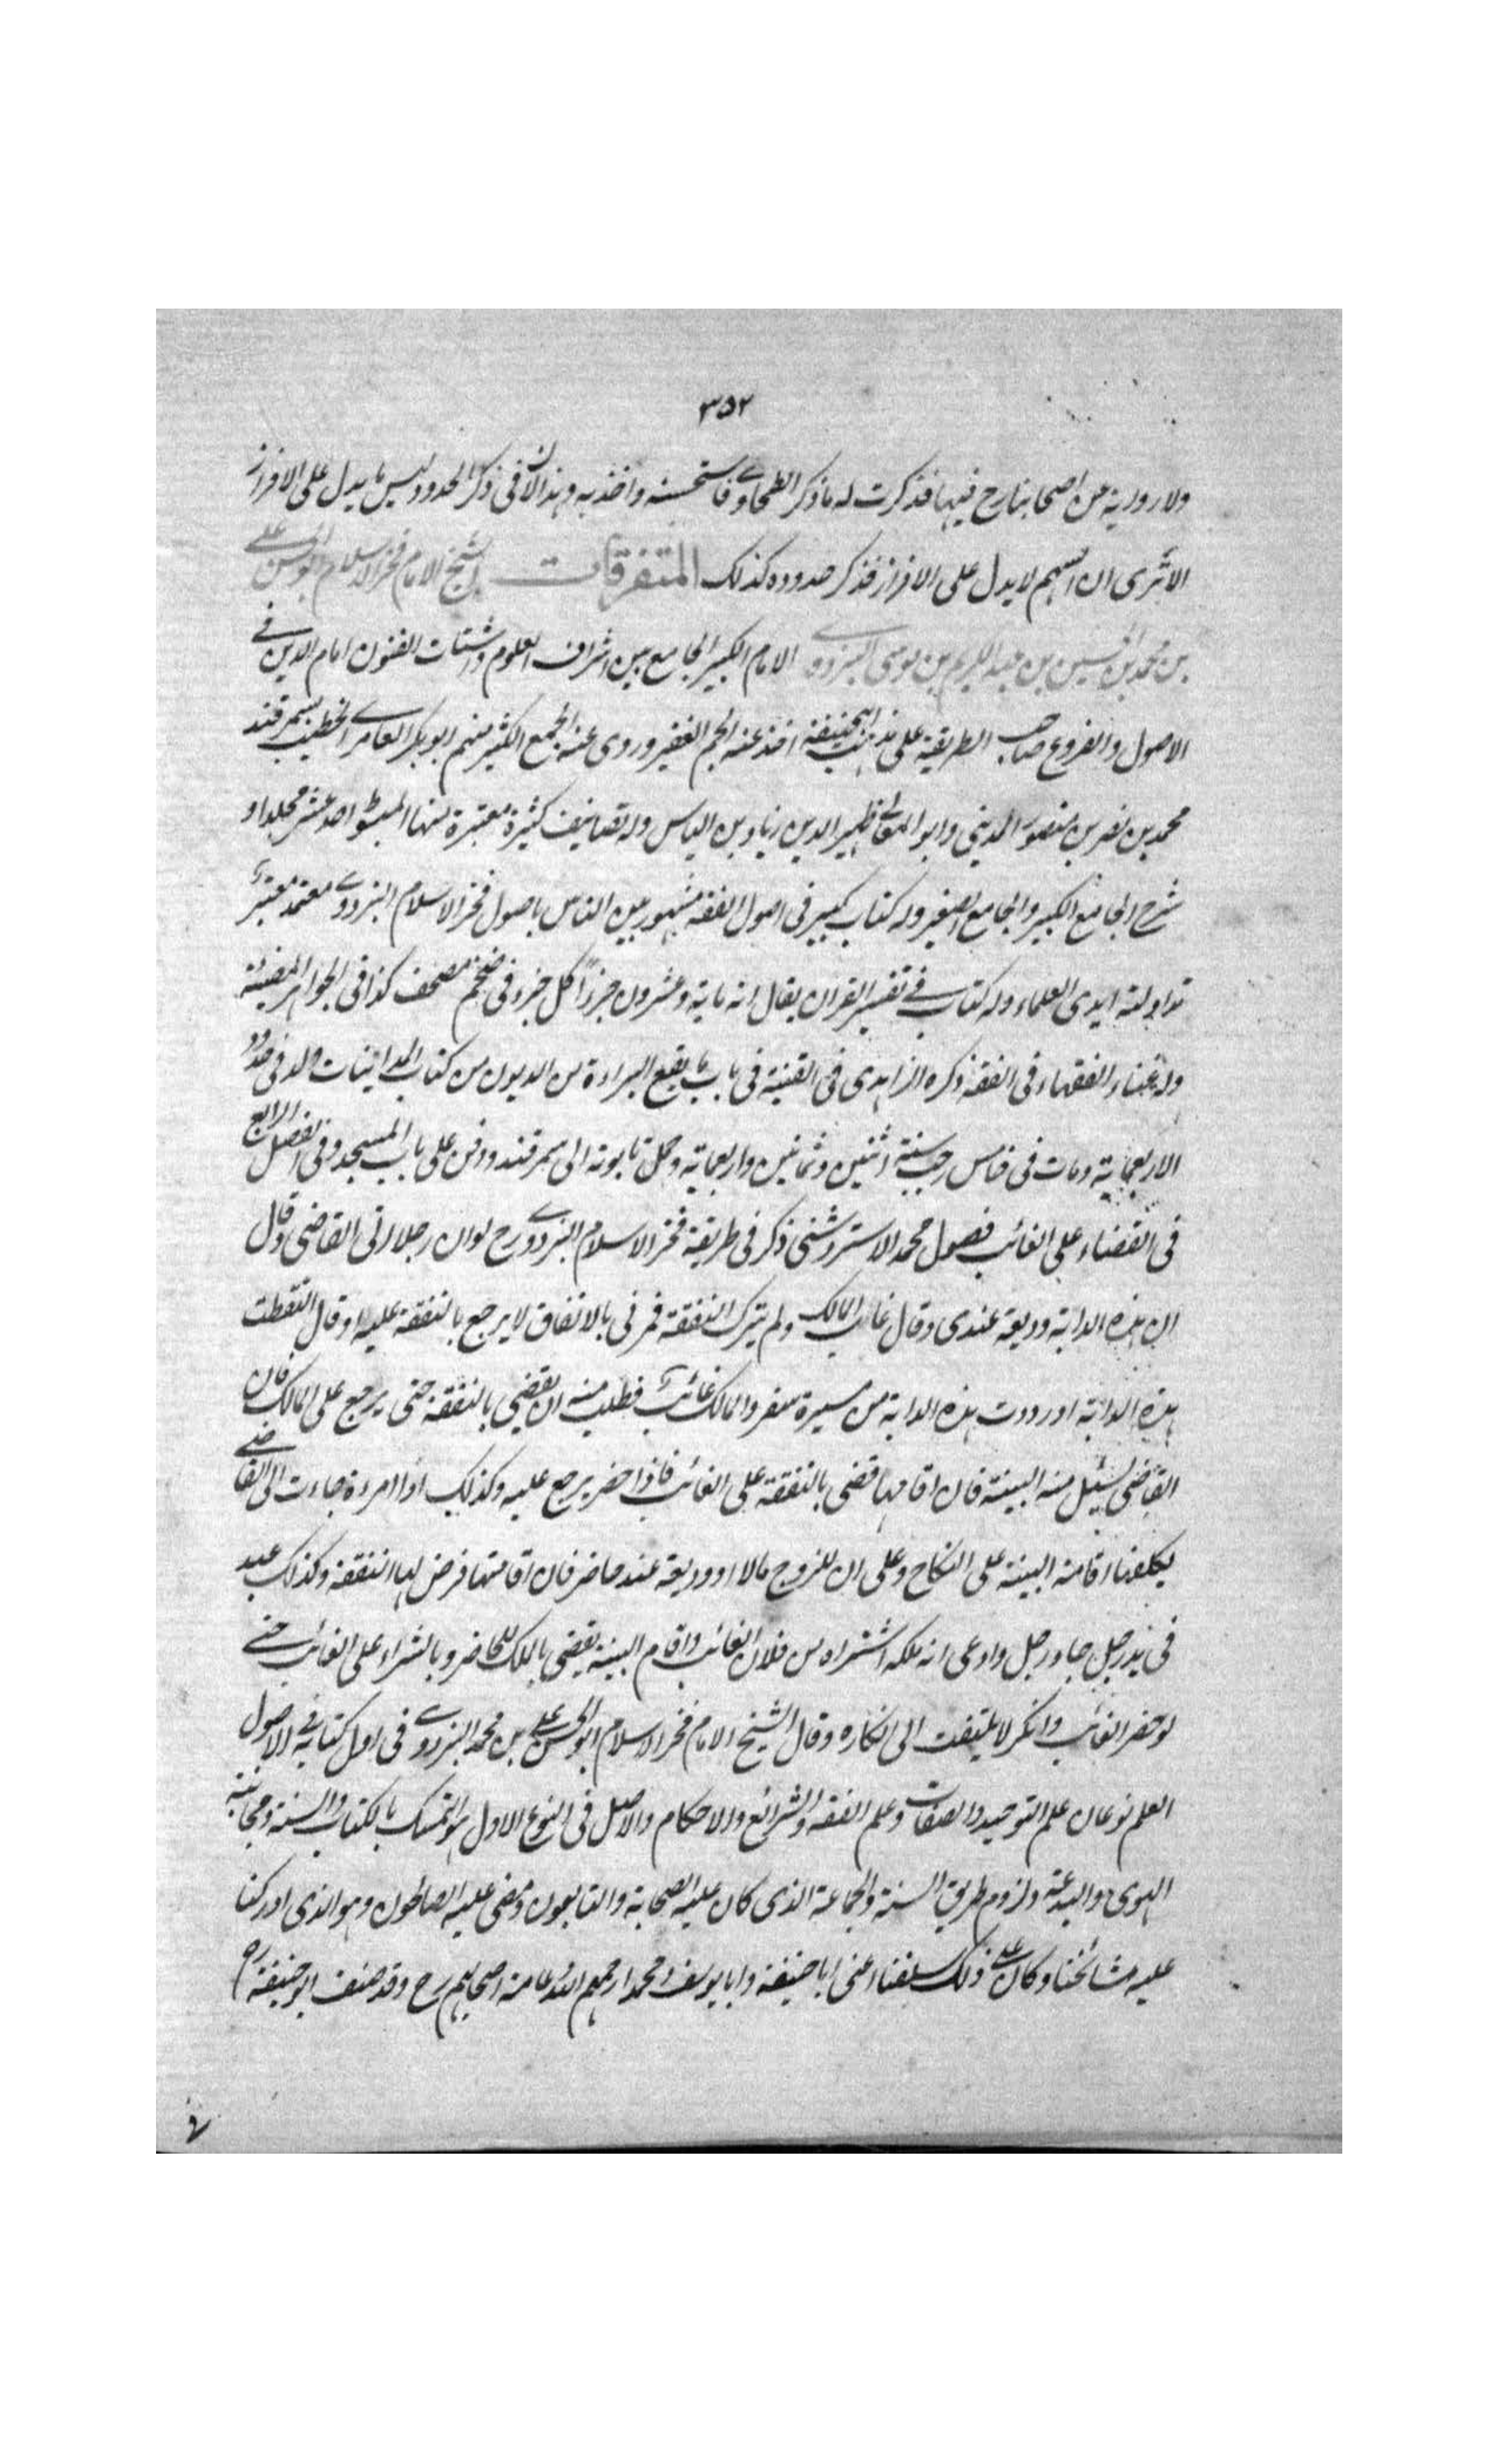 ٣٥٢
ولا رواية عن اصحابنا رح فيها فذكرت له ما ذكر الطحاوى فاستحسنه واخذ به وهذا لان فى ذكر الحدود ليس ما يدل على الافراز
الا ترى ان السهم لا يدل على الافراز فذكر حدوده كذلك المتفرقات الشيخ الامام فخر الاسلام ابو الحسن على
بن محمد بن الحسين بن عبد الكريم بن موسى البزدوى الامام الكبير الجامع بين اشراف العلوم واشتات الفنون امام الدين فى
الاصول والفروع صاحب الطريقة على مذهب ابيحنيفة اخذ عنه الجم الغفير وروى عنه الجمع الكثير منهم ابو بكر العامرى الخطيب بسمرقند
محمد بن نصر بن منصور المدينى وابو المعالى ظهير الدين زياد بن الياس وله تصانيف كثيرة معتبرة منها المبسوط احد عشر مجلدا و
شرح الجامع الكبير والجامع الصغير وله كتاب كبير فى اصول الفقه مشهور بين الناس باصول فخر الاسلام البزدوى معتمد معتبر
تداولته ايدى العلماء وله كتاب فى تفسير القران يقال انه ماية وعشرون جزءاً كل جزء فى ضخم مصحف كذا فى الجواهر المضيئة
وله غناء الفقهاء فى الفقه ذكره الزاهدى فى القنية فى باب ما يقع البراءة من الديون من كتاب المداينات ولد فى حدود
الاربعماية ومات فى خامس رجب سنة اثنين وثمانين واربعماية وحمل تابوته الى سمرقند ودفن على باب المسجد وفى الفصل الرابع
فى القضاء على الغائب فصول محمد الاستروشنى ذكر فى طريقة فخر الاسلام البزدوى رح لو ان رجلا اتى القاضى وقال
ان هذه الدابة وديعة عندى وقال غاب المالك ولم يترك النفقة فمرنى بالانفاق لا يرجع بالنفقة عليه او قال التقطت
هذه الدابة او رددت هذه الدابة من مسيرة سفر والمالك غائب فطلب منه ان يقضى بالنفقة حتى يرجع على المالك فان
القاضى يسئل منه البينة فان اقامها قضى بالنفقة على الغائب فاذا حضر يرجع عليه وكذلك اذا امرءة جاءت الى القاضى
يكلفها اقامة البينة على النكاح وعلى ان للزوج مالا او وديعة عند حاضر فان اقامتها فرض لها النفقة وكذلك عبد
فى يد رجل جاء رجل وادعى انه ملكه اشتراه من فلان الغائب واقام البينة يقضى بالملك للحاضر وبالشراء على الغائب حتى
لو حضر الغائب وانكر لا يلتفت الى انكاره وقال الشيخ الامام فخر الاسلام ابو الحسن على بن محمد البزدوى فى اول كتابه فى الاصول
العلم نوعان علم التوحيد والصفات وعلم الفقه والشرائع والاحكام والاصل فى النوع الاول هو التمسك بالكتاب والسنة ومجانبة
الهوى والبدعة ولزوم طريق السنة والجماعة الذى كان عليه الصحابة والتابعون ومضى عليه الصالحون وهو الذى ادركنا
عليه مشائخنا وكان على ذلك سلفنا اعنى ابا حنيفة وابا يوسف ومحمدا رحمهم الله وعامة اصحابهم رح وقد صنف ابو حنيفة رح